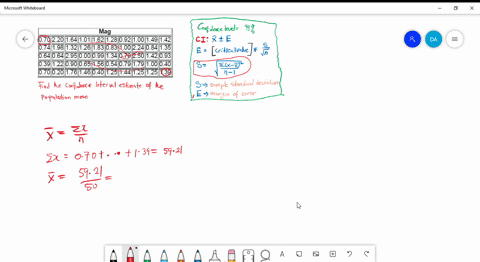 Microsoft Whiteboard
Mag
0.70 2.20 1.64 1.01 1.62 1.28 0.92 1.00 1.49 1.42
0.74 1.98 1.32 1.26 1.83 1.00 2.24 0.84 1.35
0.64 2.95 0.00 0.99 1.34
0.39 1.22 0.90 1.56 0.54 0.79 1.79 1.00 0.40
0.70 0.20 1.76 1.46 0.40 1.25 1.44 1.25 1.25 1.39
Find the Confidence interval estimate of the
Population mean
Confidence level:
CI: x̄ ± E
E = [critical value] * s/√n
S = √Σ(x-x̄)²/n-1
S → sample standard deviation
E → margin of error
x̄ = Σx/n
Σx = 0.70 + ... + 1.39 = 59.21
x̄ = 59.21/50 =
DA